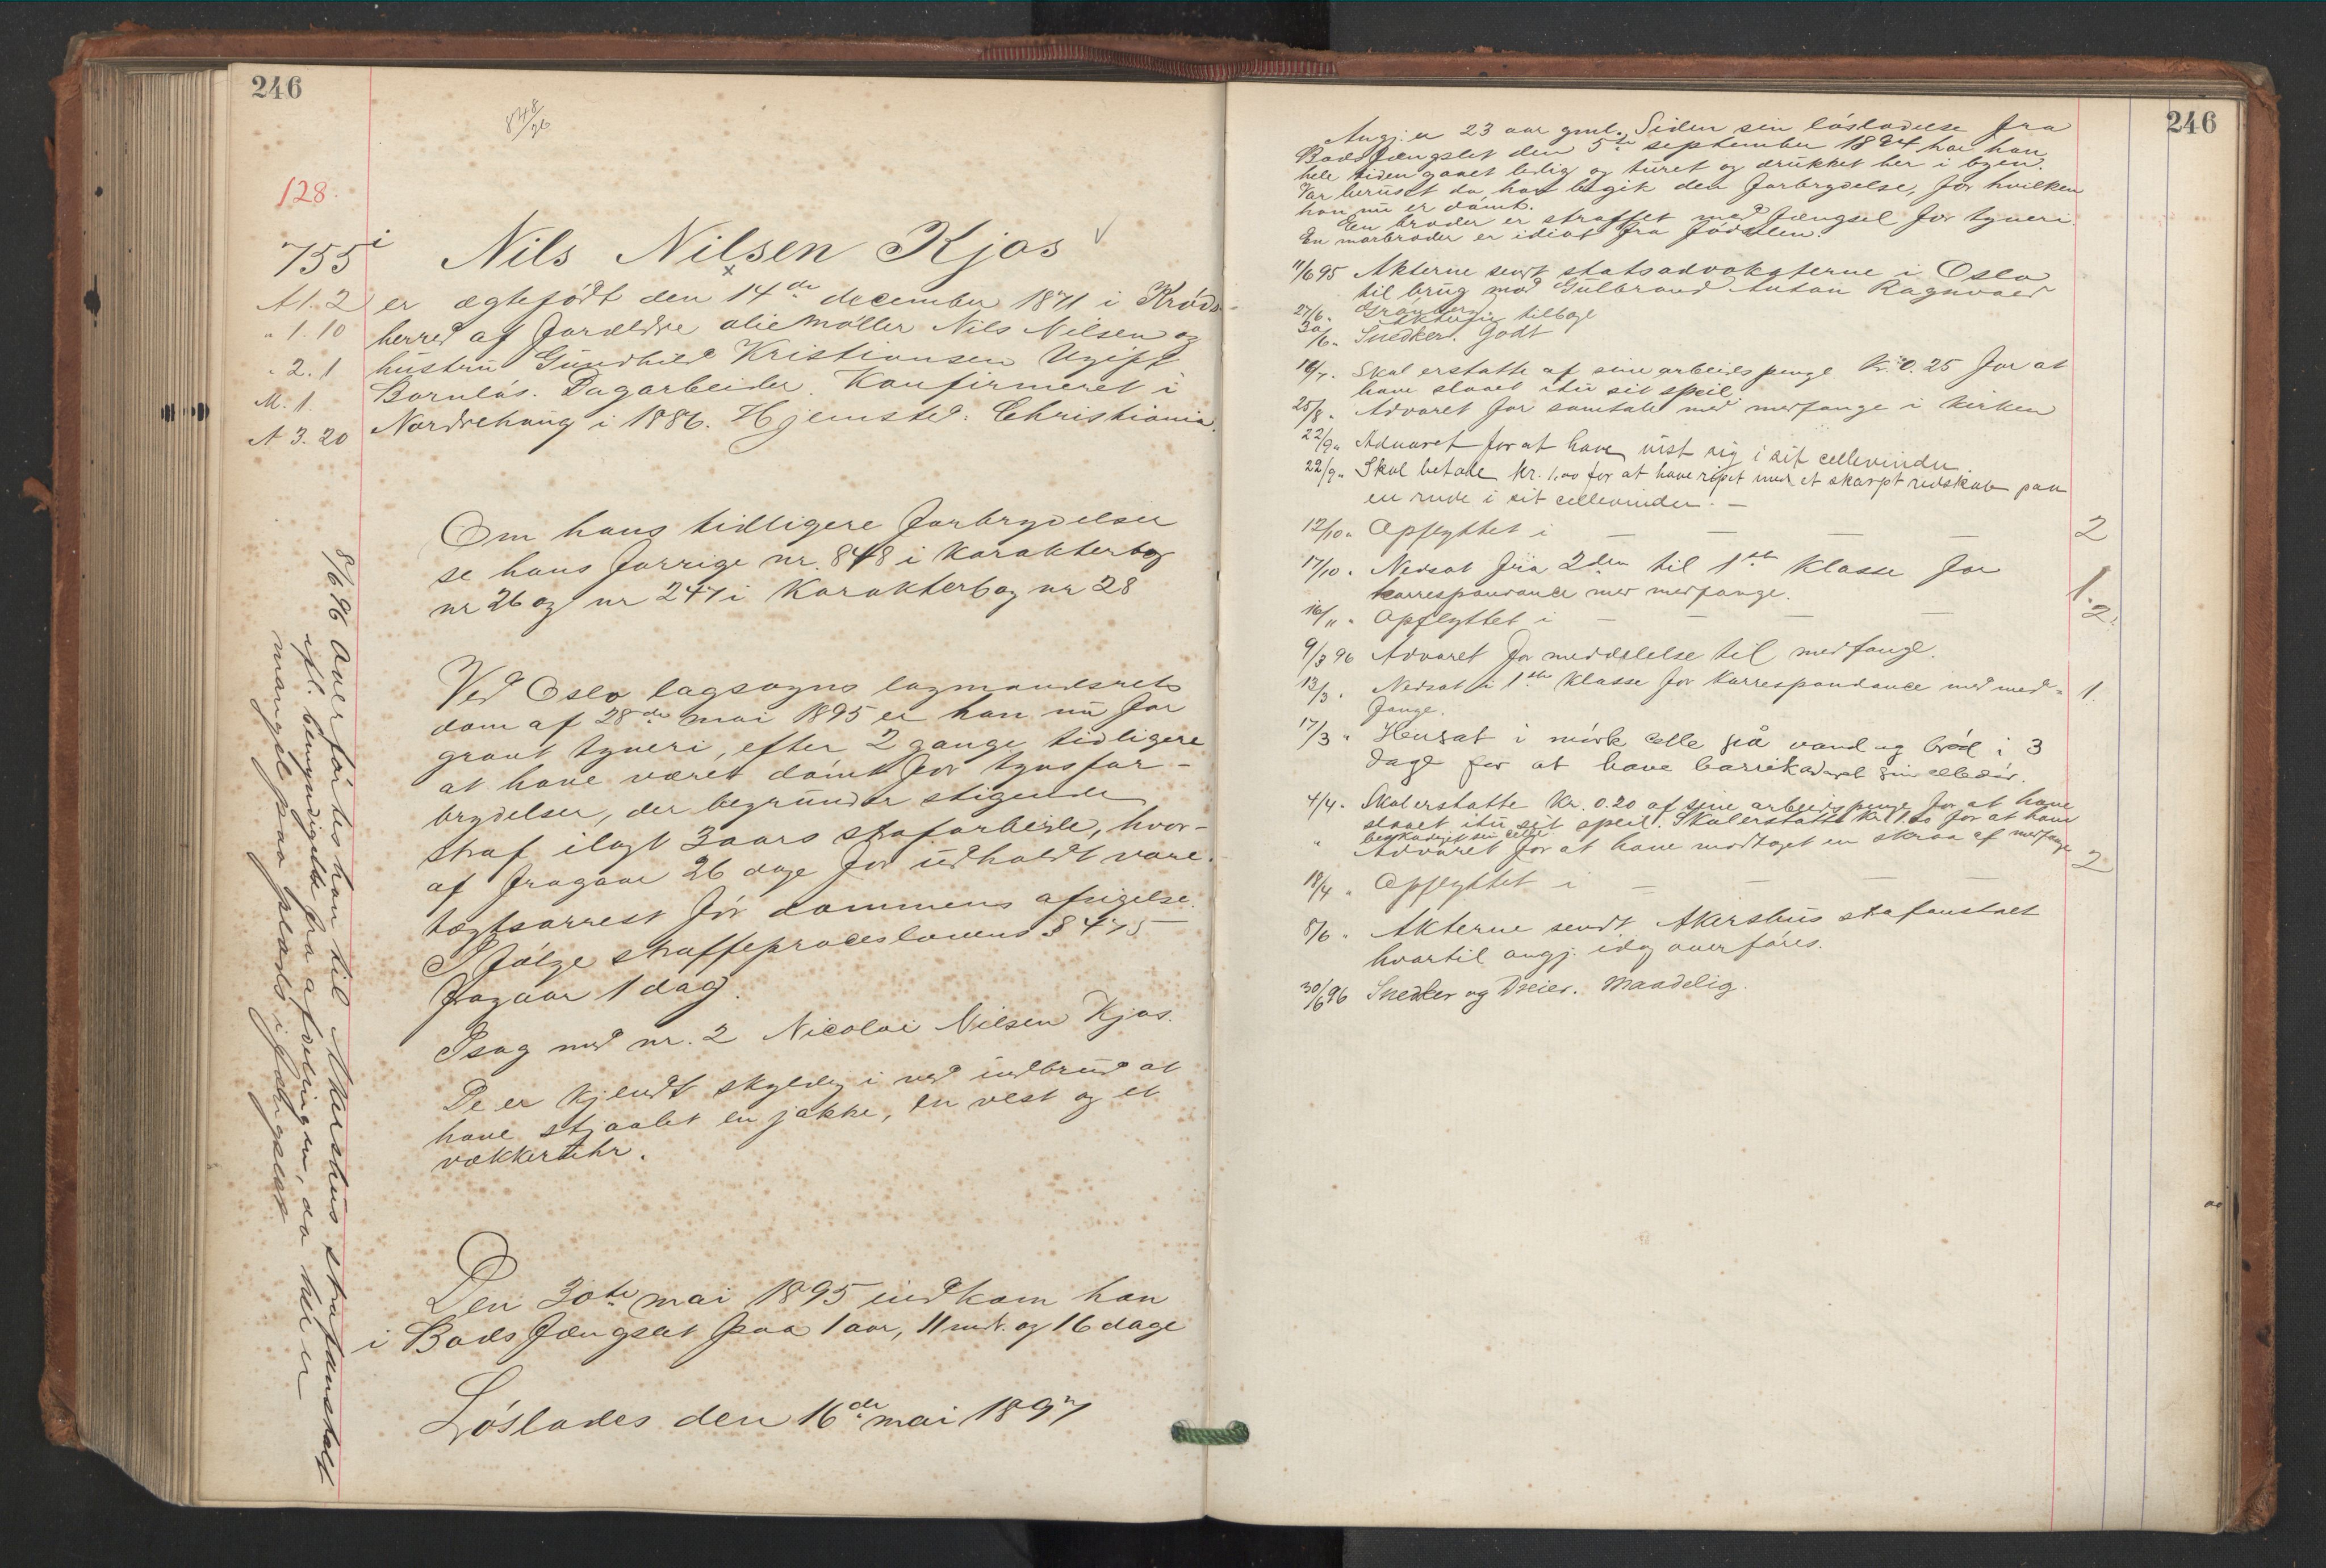 246
848/26
128.
755 i Nils Nilsen Kjos
A1. 2 er ægtefødt den 14de december 1871 i Kröds-
" 1. 10 herred af Forældre oliemøller Nils Nilsen og
" 2. 1 hustru Gundhild Kristiansen Ugift
M. 1. Barnløs. Dagarbeider. Konfirmeret i
A 3. 20 Nordrehaug i 1886. Hjemsted: Christiania.
Om hans tidligere Forbrydelser
se hans Forrige nr. 848 i Karakterbog
nr 26 og nr 247 i Karakterbog nr 28
Ved Oslo lagsogns lagmandsrets
dom af 28de mai 1895 er han nu for
grovt tyveri, efter 2 gange tidligere
at have været dømt for tyvsfor-
brydelser, der begrunder stigende
straf ilagt 3 aars strafarbeide, hvor-
af fragaar 26 dage for udholdt vare-
tægtsarrest før dommens afsigelse.
Ifølge straffeproceslovens § 475
fragaar 1 dag.
I sag med nr. 2 Nicolai Nilsen Kjos.
De er kjendt skyldig i ved indbrud at
have stjaalet en jakke, en vest og et
vækkeruhr.
Den 30te mai 1895 indkom han
i Bodsfængslet paa 1 aar, 11 mdr. og 16 dage
Løslades den 16de mai 1897
8/6 96 Overførtes han til Akershus strafanstalt
ifl. bemyndigelse fra afdelingen, da her er
mangel paa plads i fængslet
246
Angj. er 23 aar gml. Siden sin løsladelse fra
Bodsfængslet den 5te september 1894 har han
hele tiden gaaet ledig og turet og drukket her i byen.
Var beruset da han begik den forbrydelse, for hvilken
han nu er dømt.
En broder er straffet med fængsel for tyveri.
En morbroder er idiot fra fødselen.
11/6 95 Akterne sendt statsadvokaterne i Oslo
til brug mod Gulbrand Anton Ragnvald
Grønberg
27/6 " Akterne tilbage
30/6 " Snedker. Godt
19/7 " Skal erstatte af sine arbeidspenge Kr. 0.25 for at
have slaaet itu sit speil.
25/8 " Advaret for samtale med medfange i kirken
22/9 " Advaret for at have vist sig i sit cellevindu.
22/9 " Skal betale kr. 1.00 for at have ripet med et skarpt redskab paa
en rude i sit cellevindu. —
12/10 " Opflyttet i — — — — 2
17/10 " Nedsat fra 2den til 1ste Klasse for
korrespondance med medfange. 1.
16/11 " Opflyttet i — — — 2.
9/3 96 Advaret for meddelelse til medfange.
13/3 " Nedsat i 1ste Klasse for korrespondance med med- 1.
fange.
17/3 " Hensat i mørk celle på vand og brød i 3
dage for at have barrikaderet sin celledør.
4/4 " Skal erstatte Kr. 0.20 af sine arbeidspenge for at have
slaaet itu sit speil. Skal erstatte kr 1.20 for at have
beskadiget sin celle
" Advaret for at have modtaget en skraa af medfange
18/4 " Opflyttet i — — — 2
8/6 " Akterne sendt Akershus strafanstalt
hvortil angj. idag overføres.
30/6 96 Snedker og Dreier. Maadelig.